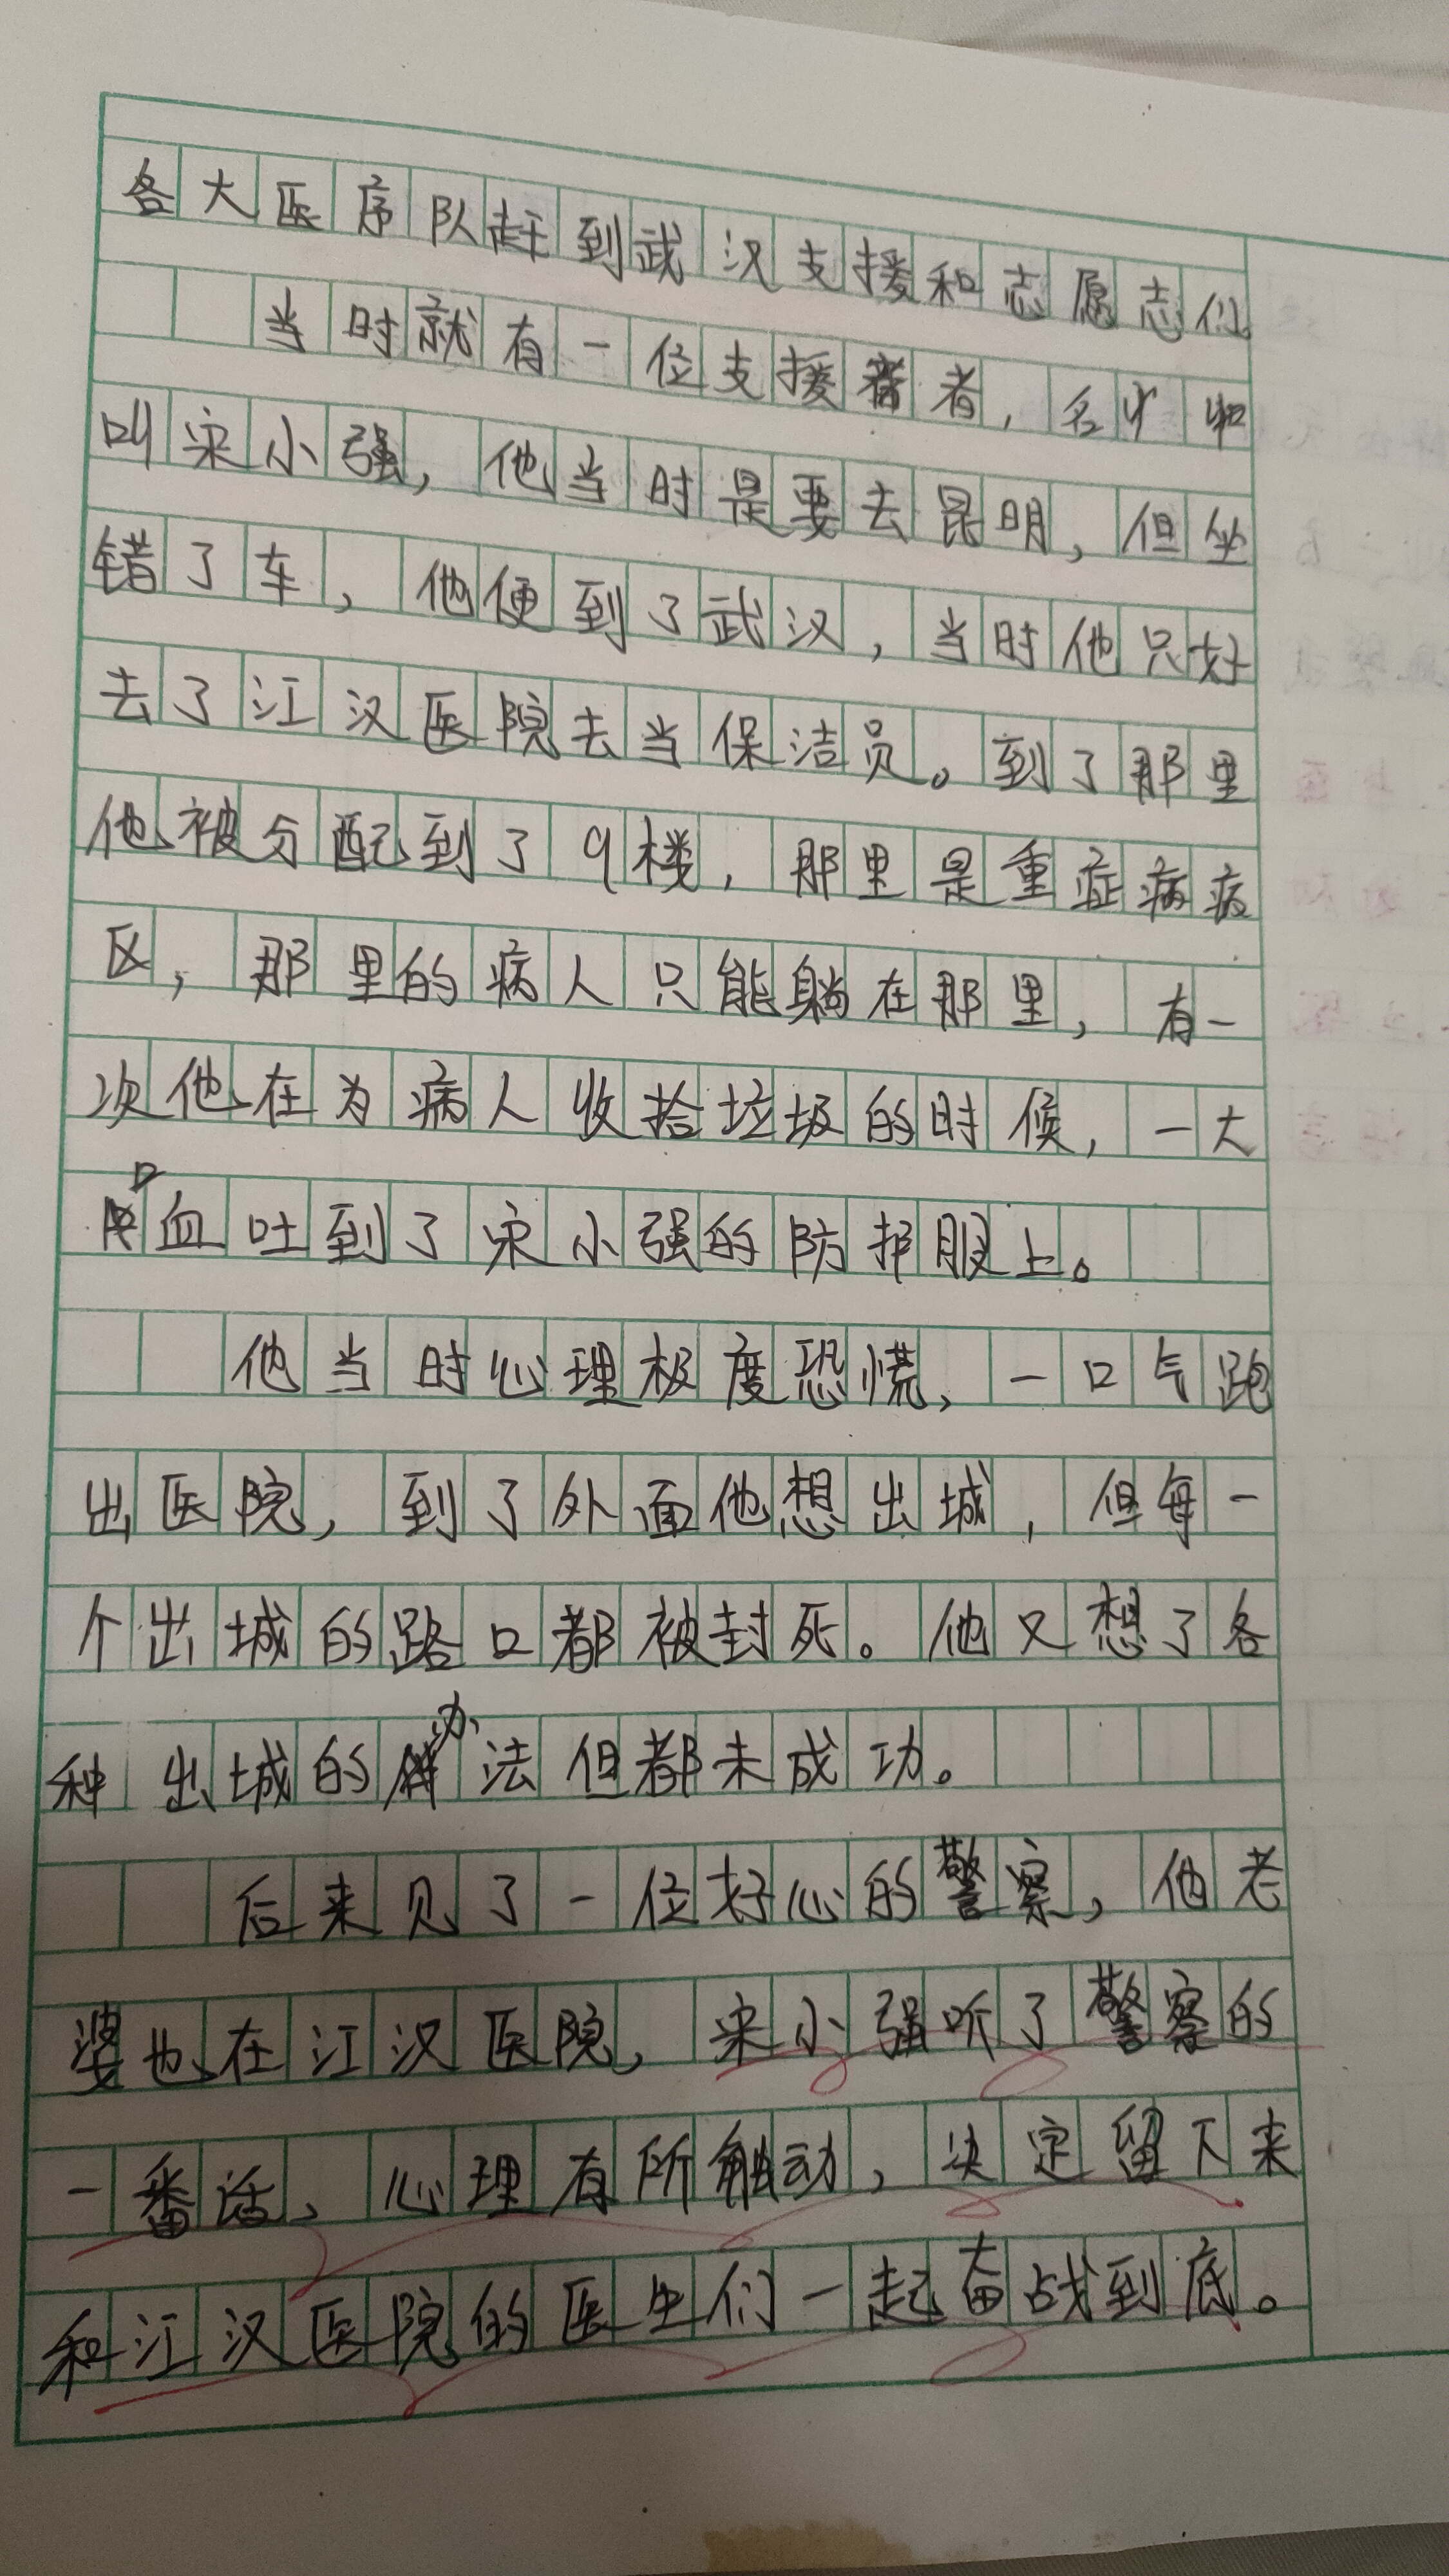 各大医疗队赶到武汉支援和志愿志们。
当时就有一位支援者，名字
叫宋小强，他当时是要去昆明，但坐
错了车，他便到了武汉，当时他只好
去了江汉医院去当保洁员。到了那里
他被分配到了9楼，那里是重症病病
区，那里的病人只能躺在那里，有一
次他在为病人收拾垃圾的时候，一大
口血吐到了宋小强的防护服上。
他当时心理极度恐慌，一口气跑
出医院，到了外面他想出城，但每一
个出城的路口都被封死。他又想了各
种出城的办法但都未成功。
后来见了一位好心的警察，他老
婆也在江汉医院，宋小强听了警察的
一番话，心理有所触动，决定留下来
和江汉医院的医生们一起奋战到底。